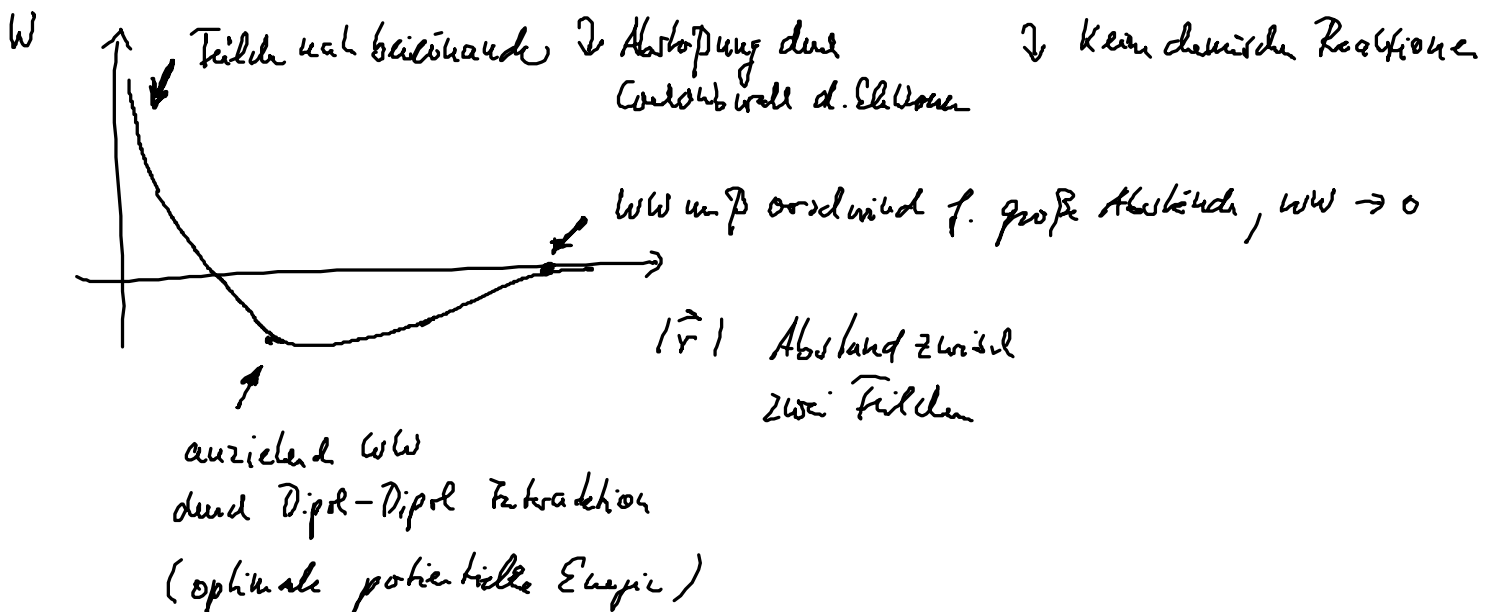 W
Teilchen nah beieinander ↷ Abstoßung durch
Coulombwall d. Elektronen
↷ Keine chemischen Reaktionen
WW muß verschwinden f. große Abstände, WW → 0
|r⃗| Abstand zwischen
zwei Teilchen
anziehende WW
durch Dipol-Dipol Interaktion
(optimale potientielle Energie)